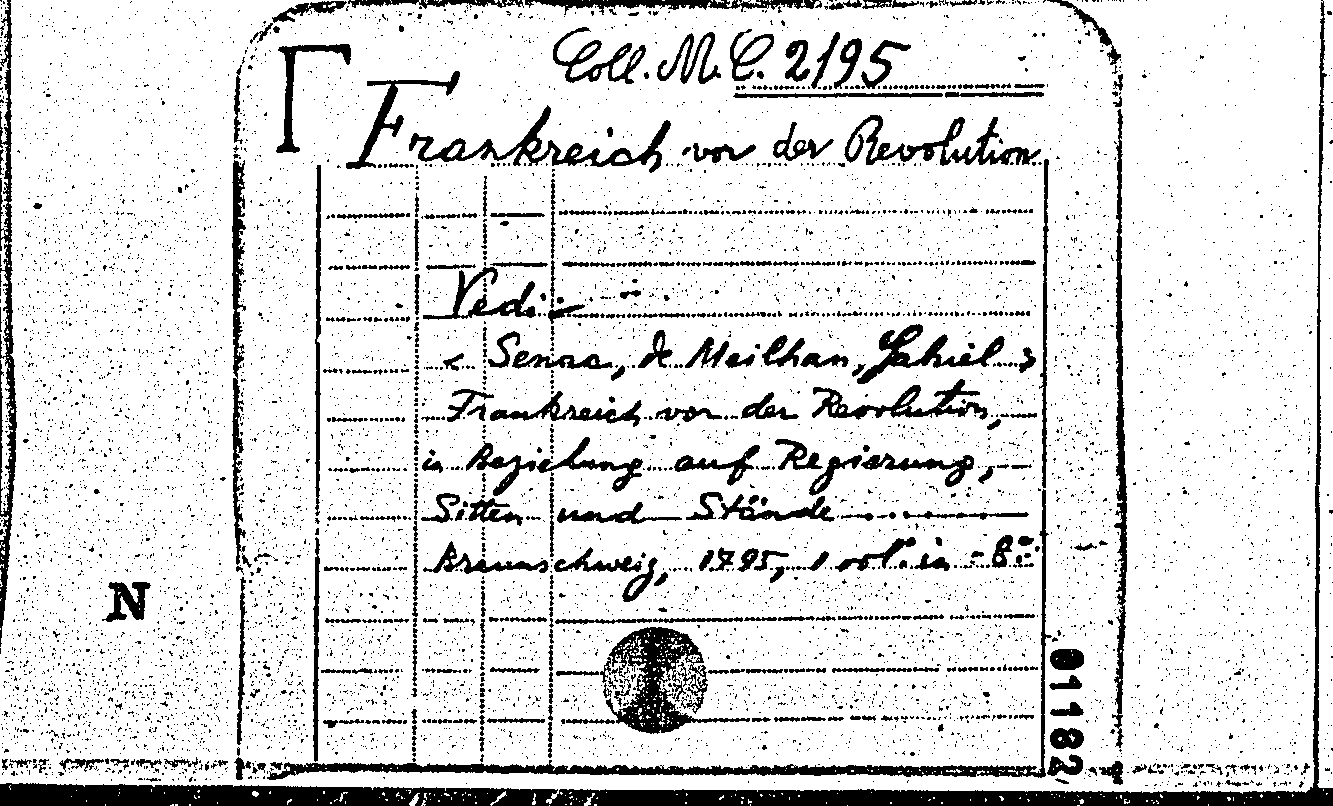 Coll. M. C. 2195
Frankreich vor der Revolution
Vedi:
< Senac, de Meilhan, Gabriel >
Frankreich vor der Revolution,
in Beziehung auf Regierung,
Sitten und Stände
Braunschweig, 1795, 1 vol. in-8º
N